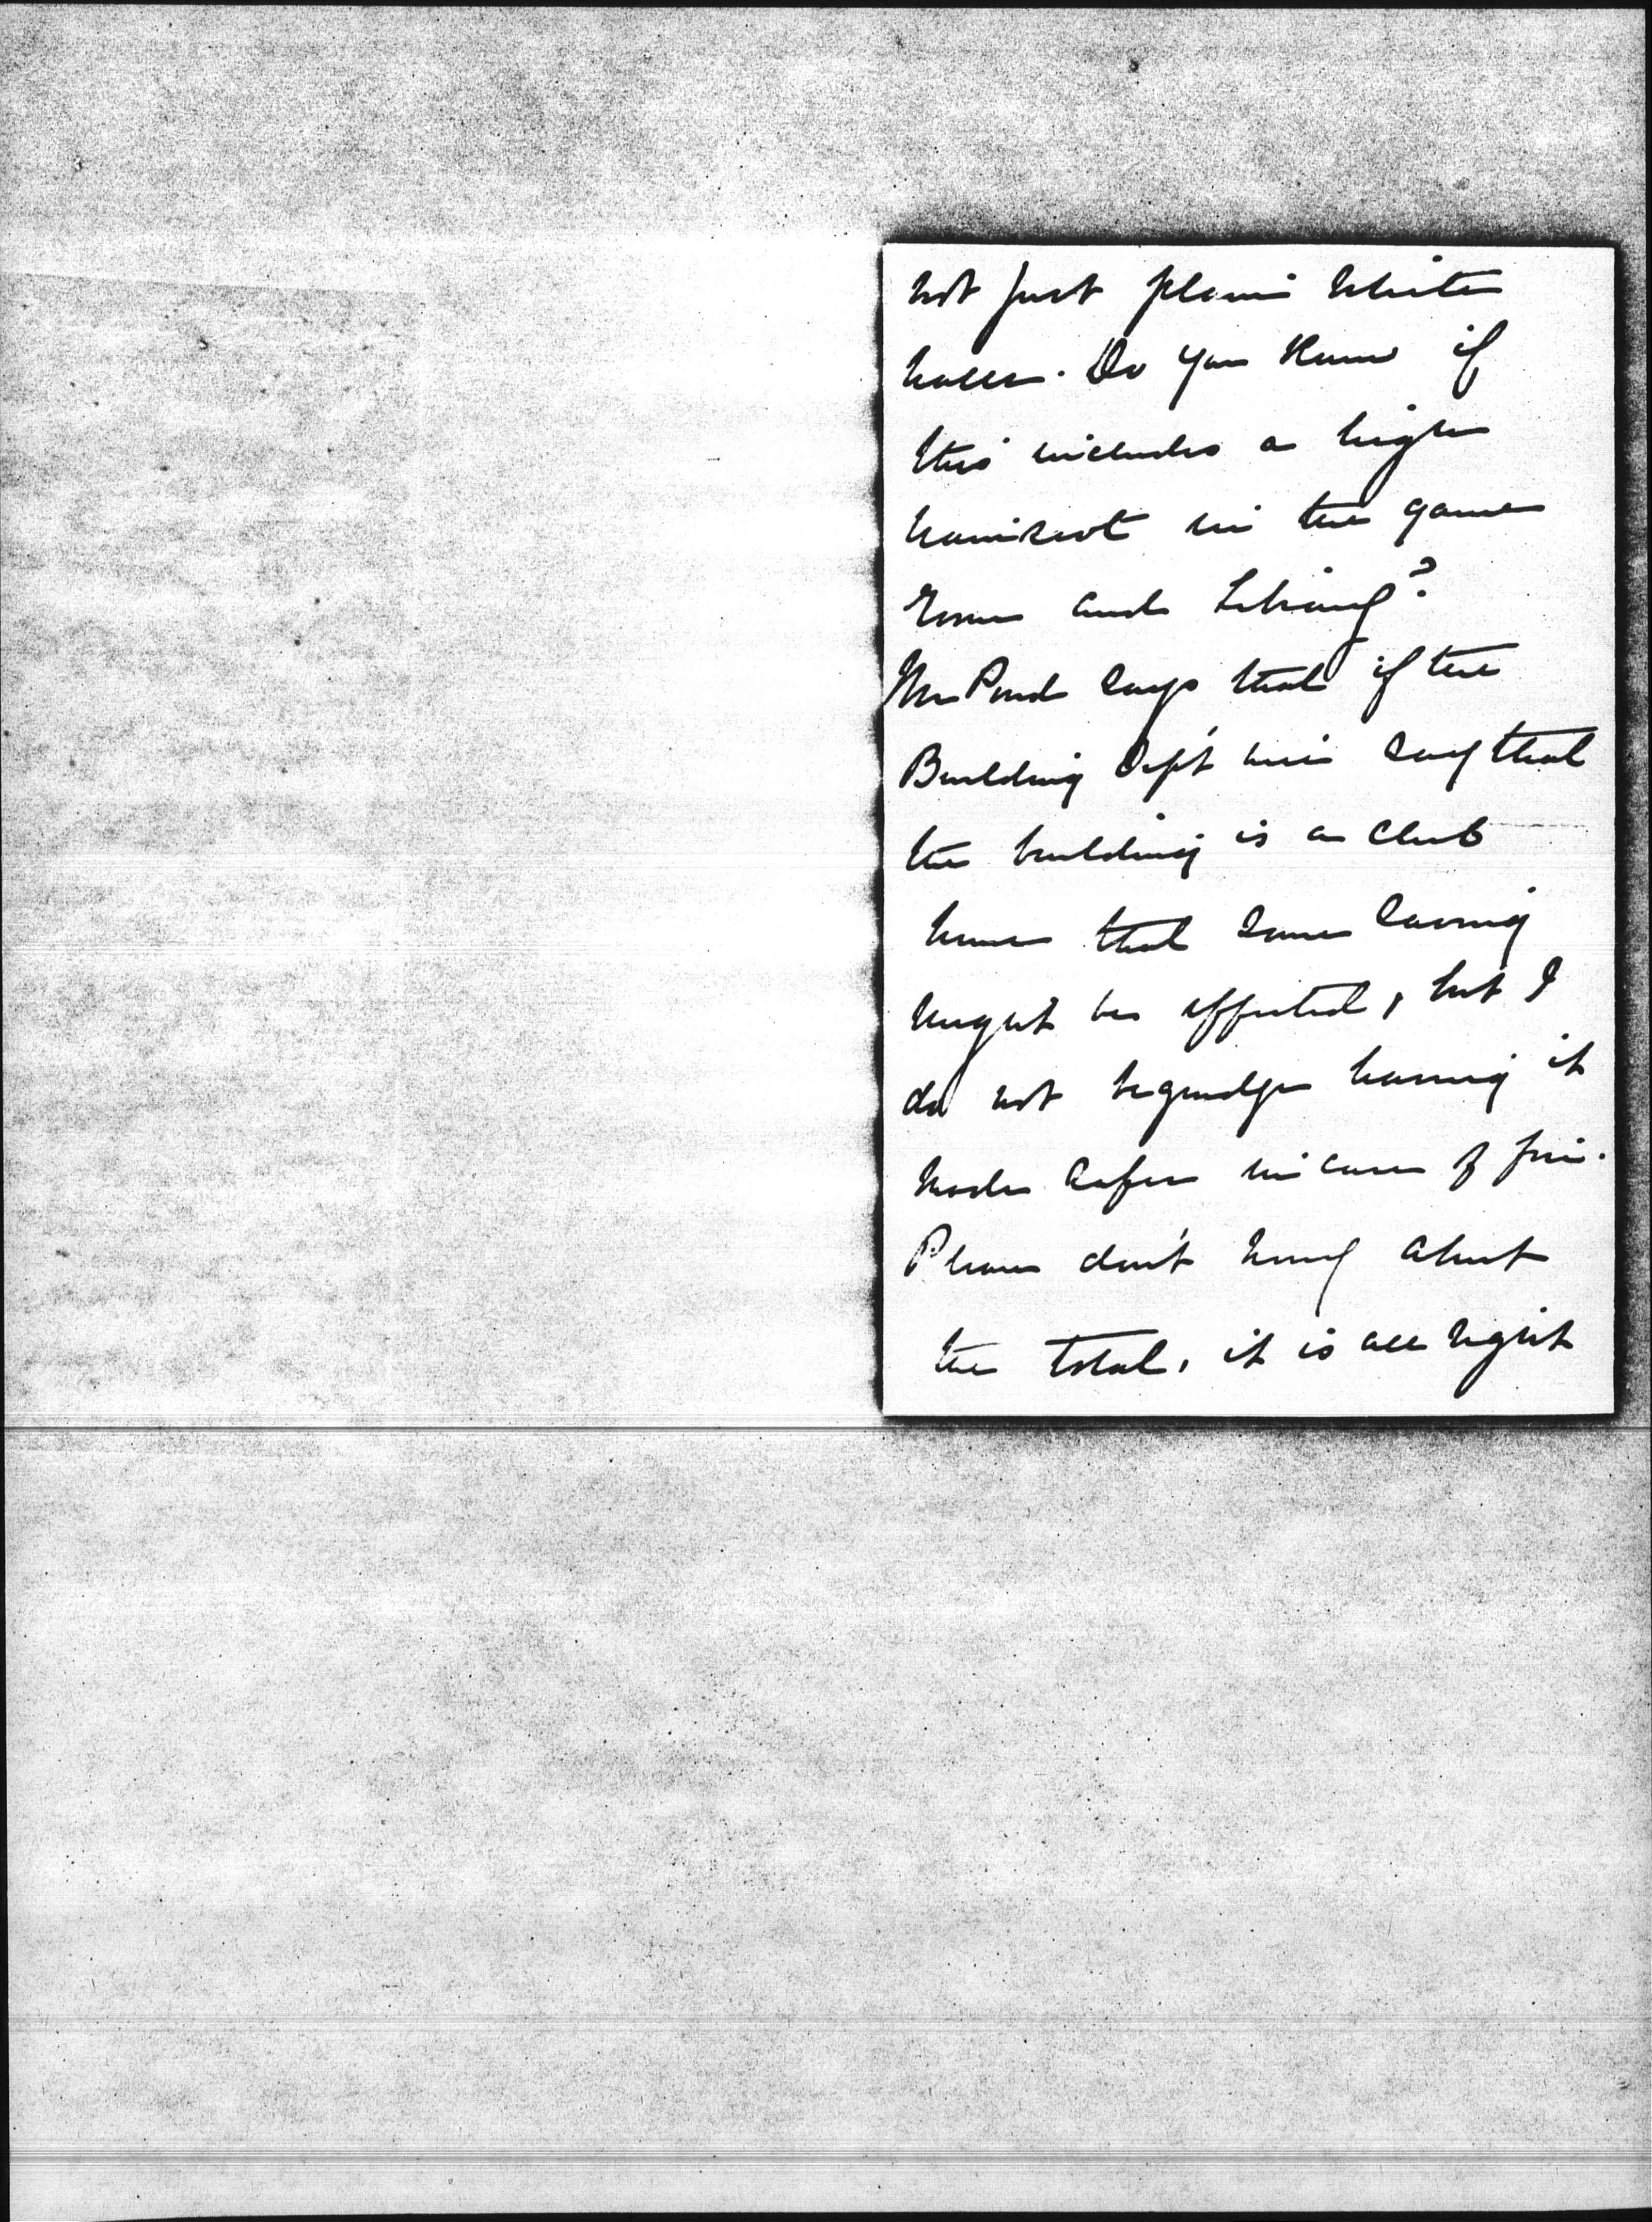 not just plain white
walls. Do you know if
this includes a high
wainscot in the game
room and Library?
Mr Pond says that if the
Building Dep't will say that
the building is a club
house that some saving
might be effected, but I
do not begrudge having it
made safer in case of fire.
Please don't worry about
the total, it is all right